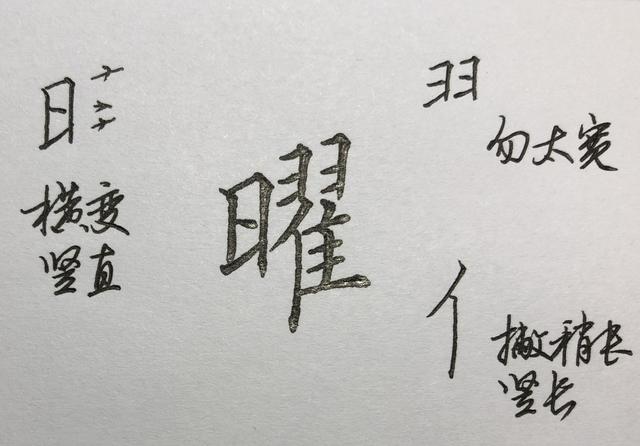 日
横变
竖直
曜
勿太宽
亻
撇稍长
竖长